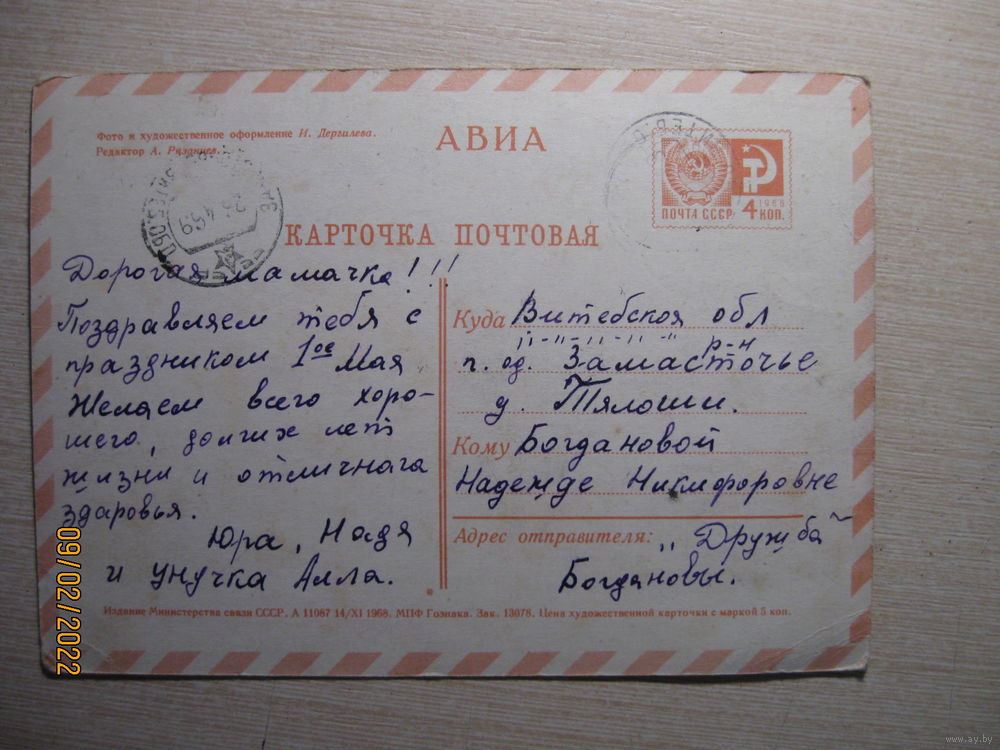 Фото и художественное оформление И. Дергилева.
Редактор А. Рязанцев.
АВИА
ПОЧТА СССР
1966
4 КОП.
КАРТОЧКА ПОЧТОВАЯ
Дорогая мамачка!!!
Поздравляем тебя с
праздником 1ое Мая
Желаем всего хоро-
шего, долгих лет
жизни и отличнага
здаровья.
Юра, Надя
и унучка Алла.
Куда Витебская обл
" -"- "- "- " р-н
п. од. Замасточье
д. Тялоши.
Кому Богдановой
Надежде Никифоровне
Адрес отправителя: „Дружба"
Богдановы.
Издание Министерства связи СССР. А 11087 14/XI 1968. МПФ Гознака. Зак. 13078. Цена художественной карточки с маркой 5 коп.
09/02/2022
www.ay.by